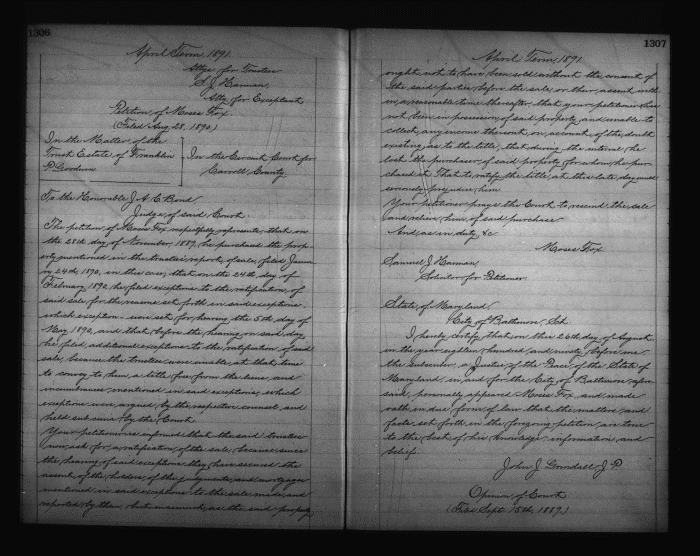 1306
April Term, 1891.
Attys for Trustees
S. J. Harman,
Atty. for Exceptant
Petition of Moses Fox
(Filed Aug. 28, 1890)
In the Matter of the
Trust Estate of Franklin
P. Goodwin
In the Circuit Court for
Carroll County.
To the Honorable J. A. C. Bond
Judge of said Court
The petition of Moses Fox respectfully represents, that on
the 28th day of November, 1889, he purchased the prop-
erty mentioned in the trustees report of sales, filed Janua
ry 24th, 1890, in this case, that on the 24th day of
February, 1890, he filed exceptions to the ratification, of
said sale, for the reasons set forth in said exceptions
which exception were set for hearing the 5th day of
May 1890, and that before the hearing on said day,
he filed additional exceptions to the ratification, of said
sale, because the trustees were unable, at that time
to convey to him, a title free from the liens, and
incumbrances, mentioned in said exceptions, which
exceptions were argued, by the respective counsel, and
held sub curia by the Court.
Your petitioner is informed that the said trustees
now ask for a ratification of the sale, because since
the hearing of said exceptions they have secured the
assent, of the holders, of the judgments, and mortgages
mentioned in said exceptions to the sale, made, and
reported by them, but inasmuch, as the said property
1307
April Term, 1891
ought not to have been sold without the consent of
the said parties, before the sale, or their assent with
in a reasonable time thereafter, that your petitioner has
not been in possession, of said property, and unable to
collect, any income therefrom, on account, of the doubt
existing, as to the title, that during the interval, he
lost the purchaser, of said property, for whom, he pur-
chased it. That to ratify the title, at this late day, would
seriously, prejudice, him
Your petitioner prays the Court, to rescind the sale
and relieve, him of said purchase
And as in duty, &c.
Moses Fox
Samuel J. Harman,
Solicitor for Petitioner
State of Maryland
City of Baltimore, Sct.
I hereby certify, that on this 26th day of August
in the year eighteen hundred, and ninety, before me
the subscriber, a Justice, of the Peace of the State of
Maryland, in, and for the City of Baltimore, afore
said, personally appeared, Moses Fox, and made
oath in due form, of law, that the matters, and
facts set forth in the foregoing petition, are true
to the best of his knowledge information, and
belief.
John J. J. P.
Opinion, of Court
(Filed Sept. 15th, 1889.)